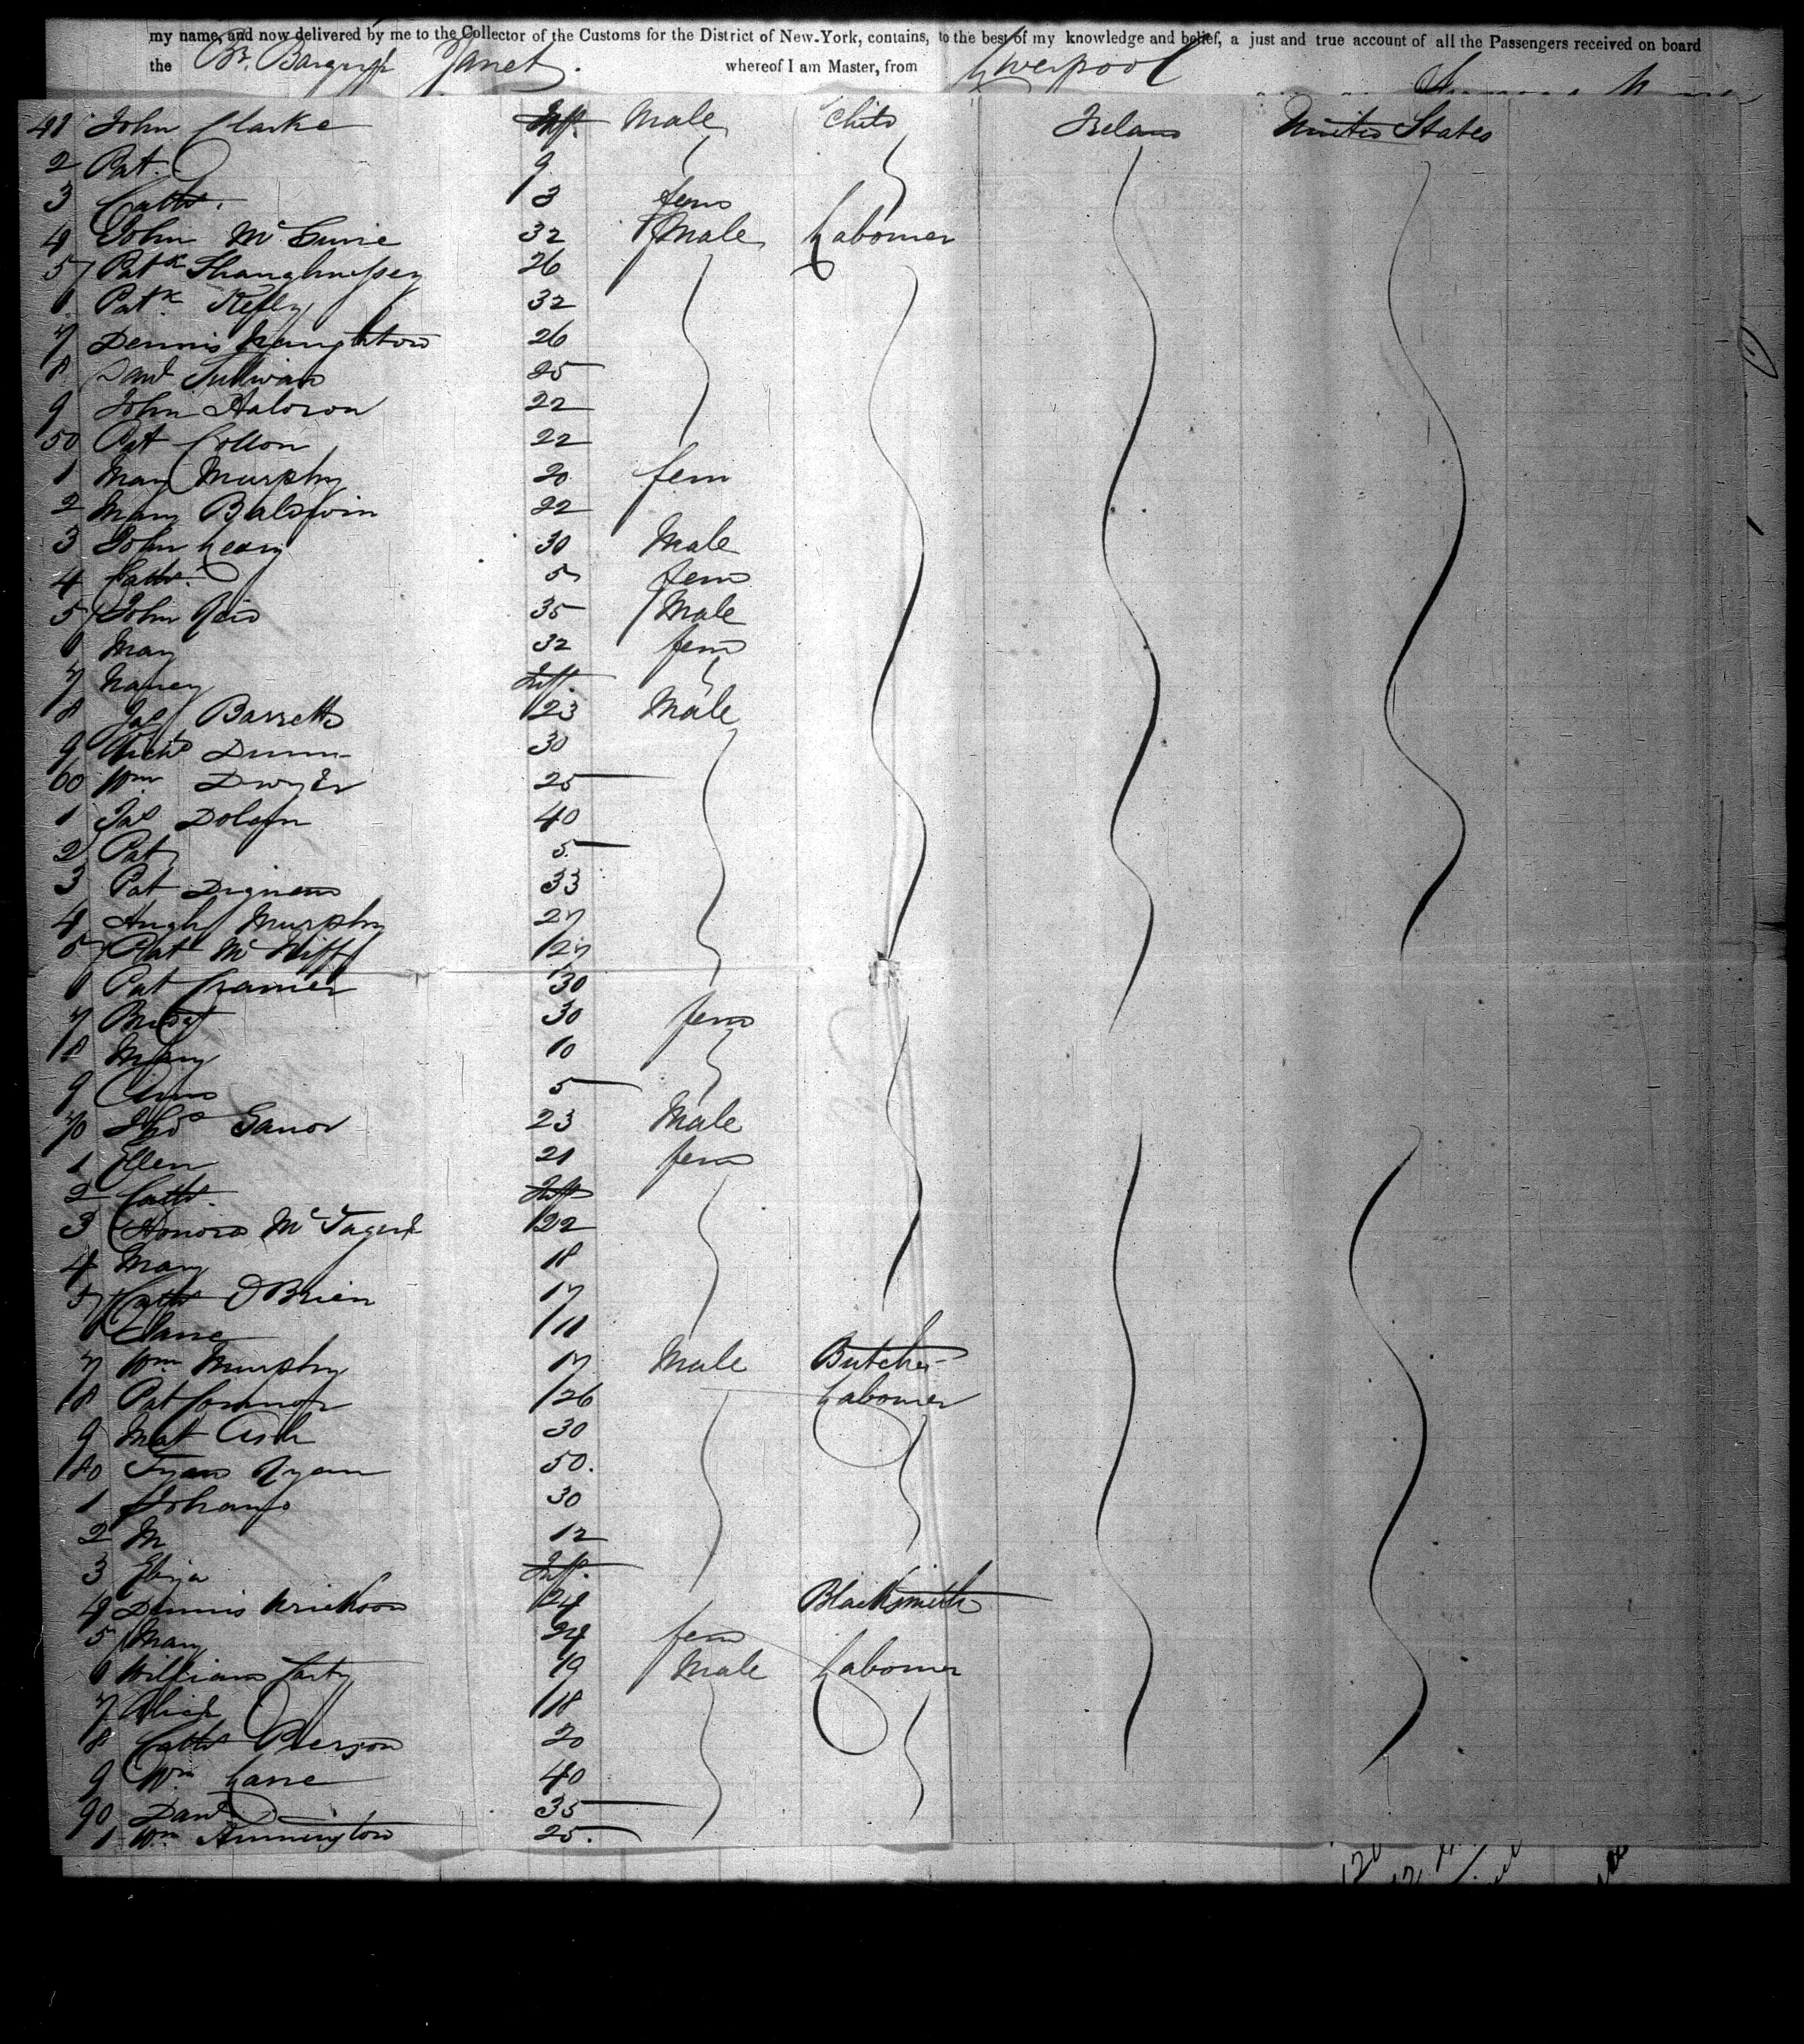 my name, and now delivered by me to the Collector of the Customs for the District of New-York, contains, to the best of my knowledge and belief, a just and true account of all the Passengers received on board
the Br. Barque Janet. whereof I am Master, from Liverpool
41 John Clarke Inft. Male Child Ireland United States
2 Pat. 9
3 Cathe. 3 fem
4 John McGuire 32 Male Labourer
5 Patk Shaughnessey 26
6 Patk Kelly 32
7 Dennis Naughton 26
8 Danl Sullivan 25
9 John Haloron 22
50 Pat Collon 22
1 Mary Murphy 20 fem
2 Mary Baldwin 22
3 John Leary 30 Male
4 Cathe. 5 fem
5 John Reid 35 Male
6 Mary 32 fem
7 Nancy Inft.
8 Jas Barrett 23 Male
9 Richd Dunn 30
60 Wm Dwyer 25
1 Jas Dolan 40
2 Pat 5
3 Pat Dignam 33
4 Hugh Murphy 27
5 Pat McNiff 27
6 Pat 30
7 Bridgt 30 fem
8 Mary 10
9 Ann 5
70 Thos Ganor 23 Male
1 Ellen 21 fem
2 Cathe. Inft
3 Honora Mc 22
4 Mary 18
5 Cathe O'Brien 17
6 Jane 11
7 Wm Murphy 17 Male Butcher
8 Pat Connor 26 Labourer
9 Mat Ash 30
80 Ryan 50.
1 Johana 30
2 M 12
3 Eliza Inft.
4 Dennis 24 Blacksmith
5 Mary 24 fem
6 William Carty 19 Male Labourer
7 Alice 18
8 Cathe Pierson 20
9 Wm Lane 40
90 Danl 35
1 Wm 25.